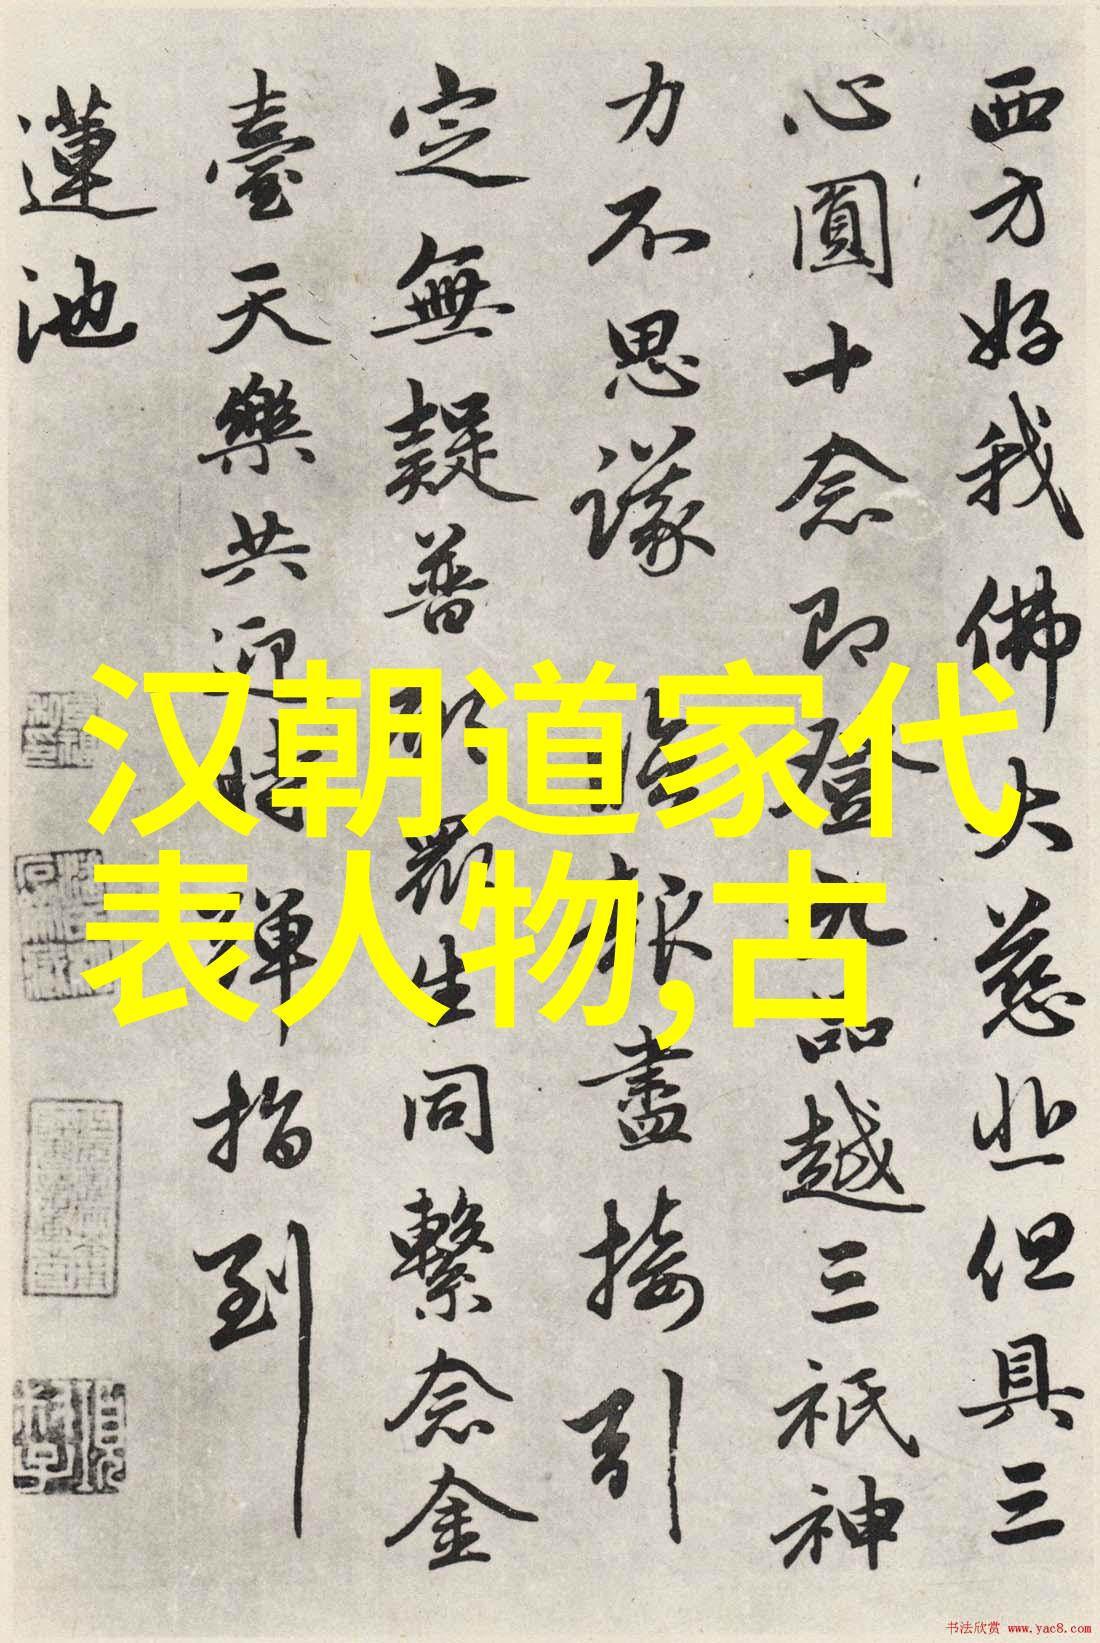 西方好我佛大慈悲但具三
心圓十念即登九品越三祇神
力不思議臨報盡接引
定無疑普願眾生同繫念金
臺天樂共迎時彈指到
蓮池
汉朝道家代
表人物,古
书法欣赏 www.yac8.com